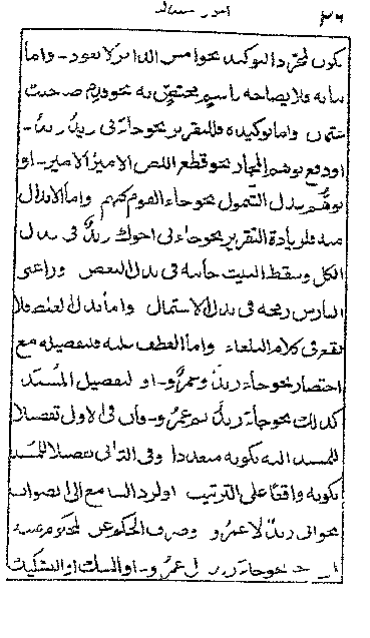 يكون لمجرد التوكيد نحو امس الدابر لا يعود - واما
بيانه فلايضاحه باسم مختص به نحو قدم صديقك
عثمان واما توكيده فللتقرير نحو جاءنى زيد زيد -
او دفع توهم المجاز نحو قطع اللص الامير الامير - او
توهم بدل الشمول نحو جاء القوم كلهم واما الابدال
منه فلزيادة التقرير نحو جاءنى اخوك زيد فى بدل
الكل وسقط البيت جانبه فى بدل البعض وراعنى
الفارس رمحه فى بدل الاشتمال واما بدل الغلط فلا
يقع فى كلام البلغاء واما العطف عليه فلتفصيله مع
اختصار نحو جاء زيد وعمرو - او لتفصيل المسند
كذلك نحو جاء زيد ثم عمرو - فان فى الاول تفصيلا
للمسند اليه بكونه متعددا وفى الثانى تفصيلا للمسند
بكونه واقعا على الترتيب او لرد السامع الى الصواب
نحو اتى زيد لا عمرو وصرف الحكم عن
نحو جاء زيد بل عمرو - او الشك او التشكيك